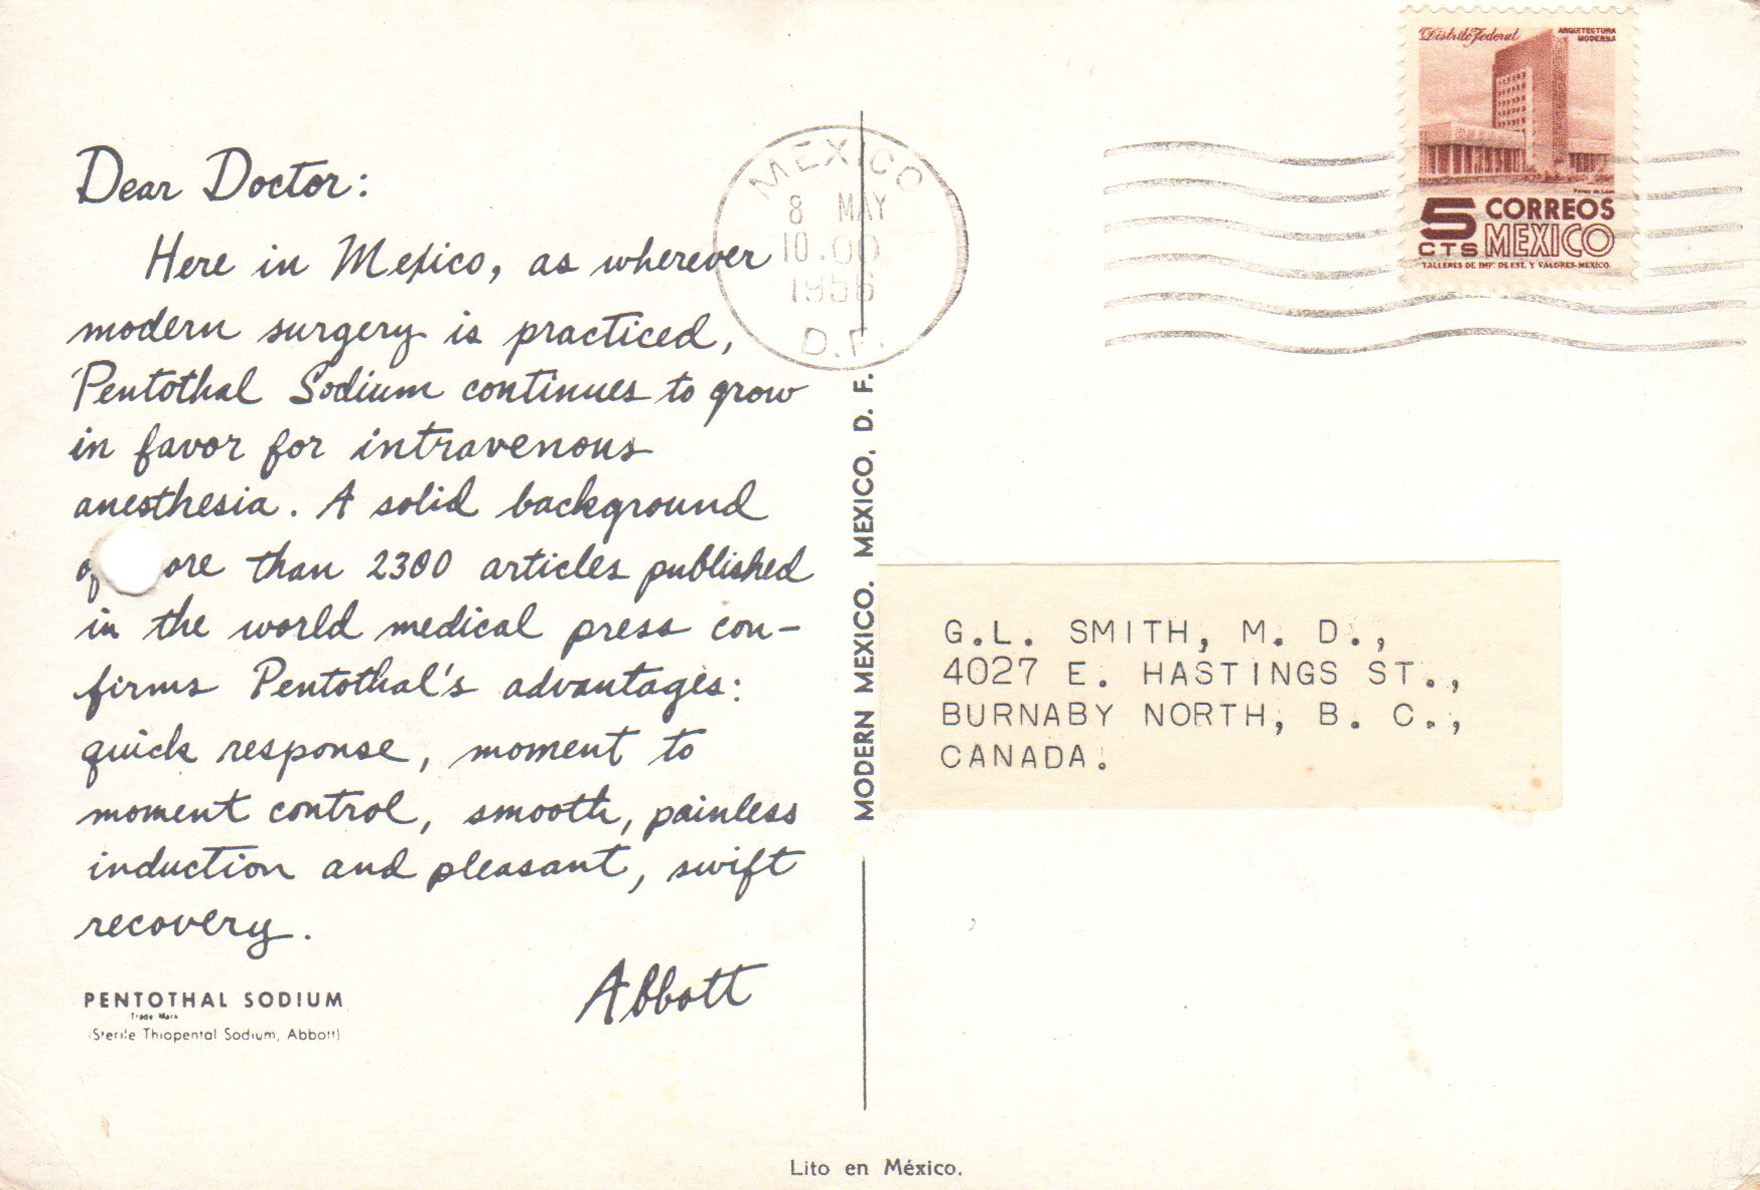 Dear Doctor:
Here in Mexico, as wherever
modern surgery is practiced,
Pentothal Sodium continues to grow
in favor for intravenous
anesthesia. A solid background
than 2300 articles published
in the world medical press con-
firms Pentothal's advantages:
quick response, moment to
moment control, smooth, painless
induction and pleasant, swift
recovery.
Abbott
PENTOTHAL SODIUM
Trade Mark
(Sterile Thiopental Sodium, Abbott)
MEXICO
8 MAY
10.00
1956
D.F.
MODERN MEXICO. MEXICO, D. F.
Distrito Federal
ARQUITECTURA
MODERNA
5 CTS
CORREOS
MEXICO
TALLERES DE IMP. DE EST. Y VALORES-MEXICO.
G.L. SMITH, M. D.,
4027 E. HASTINGS ST.,
BURNABY NORTH, B. C.,
CANADA.
Lito en México.